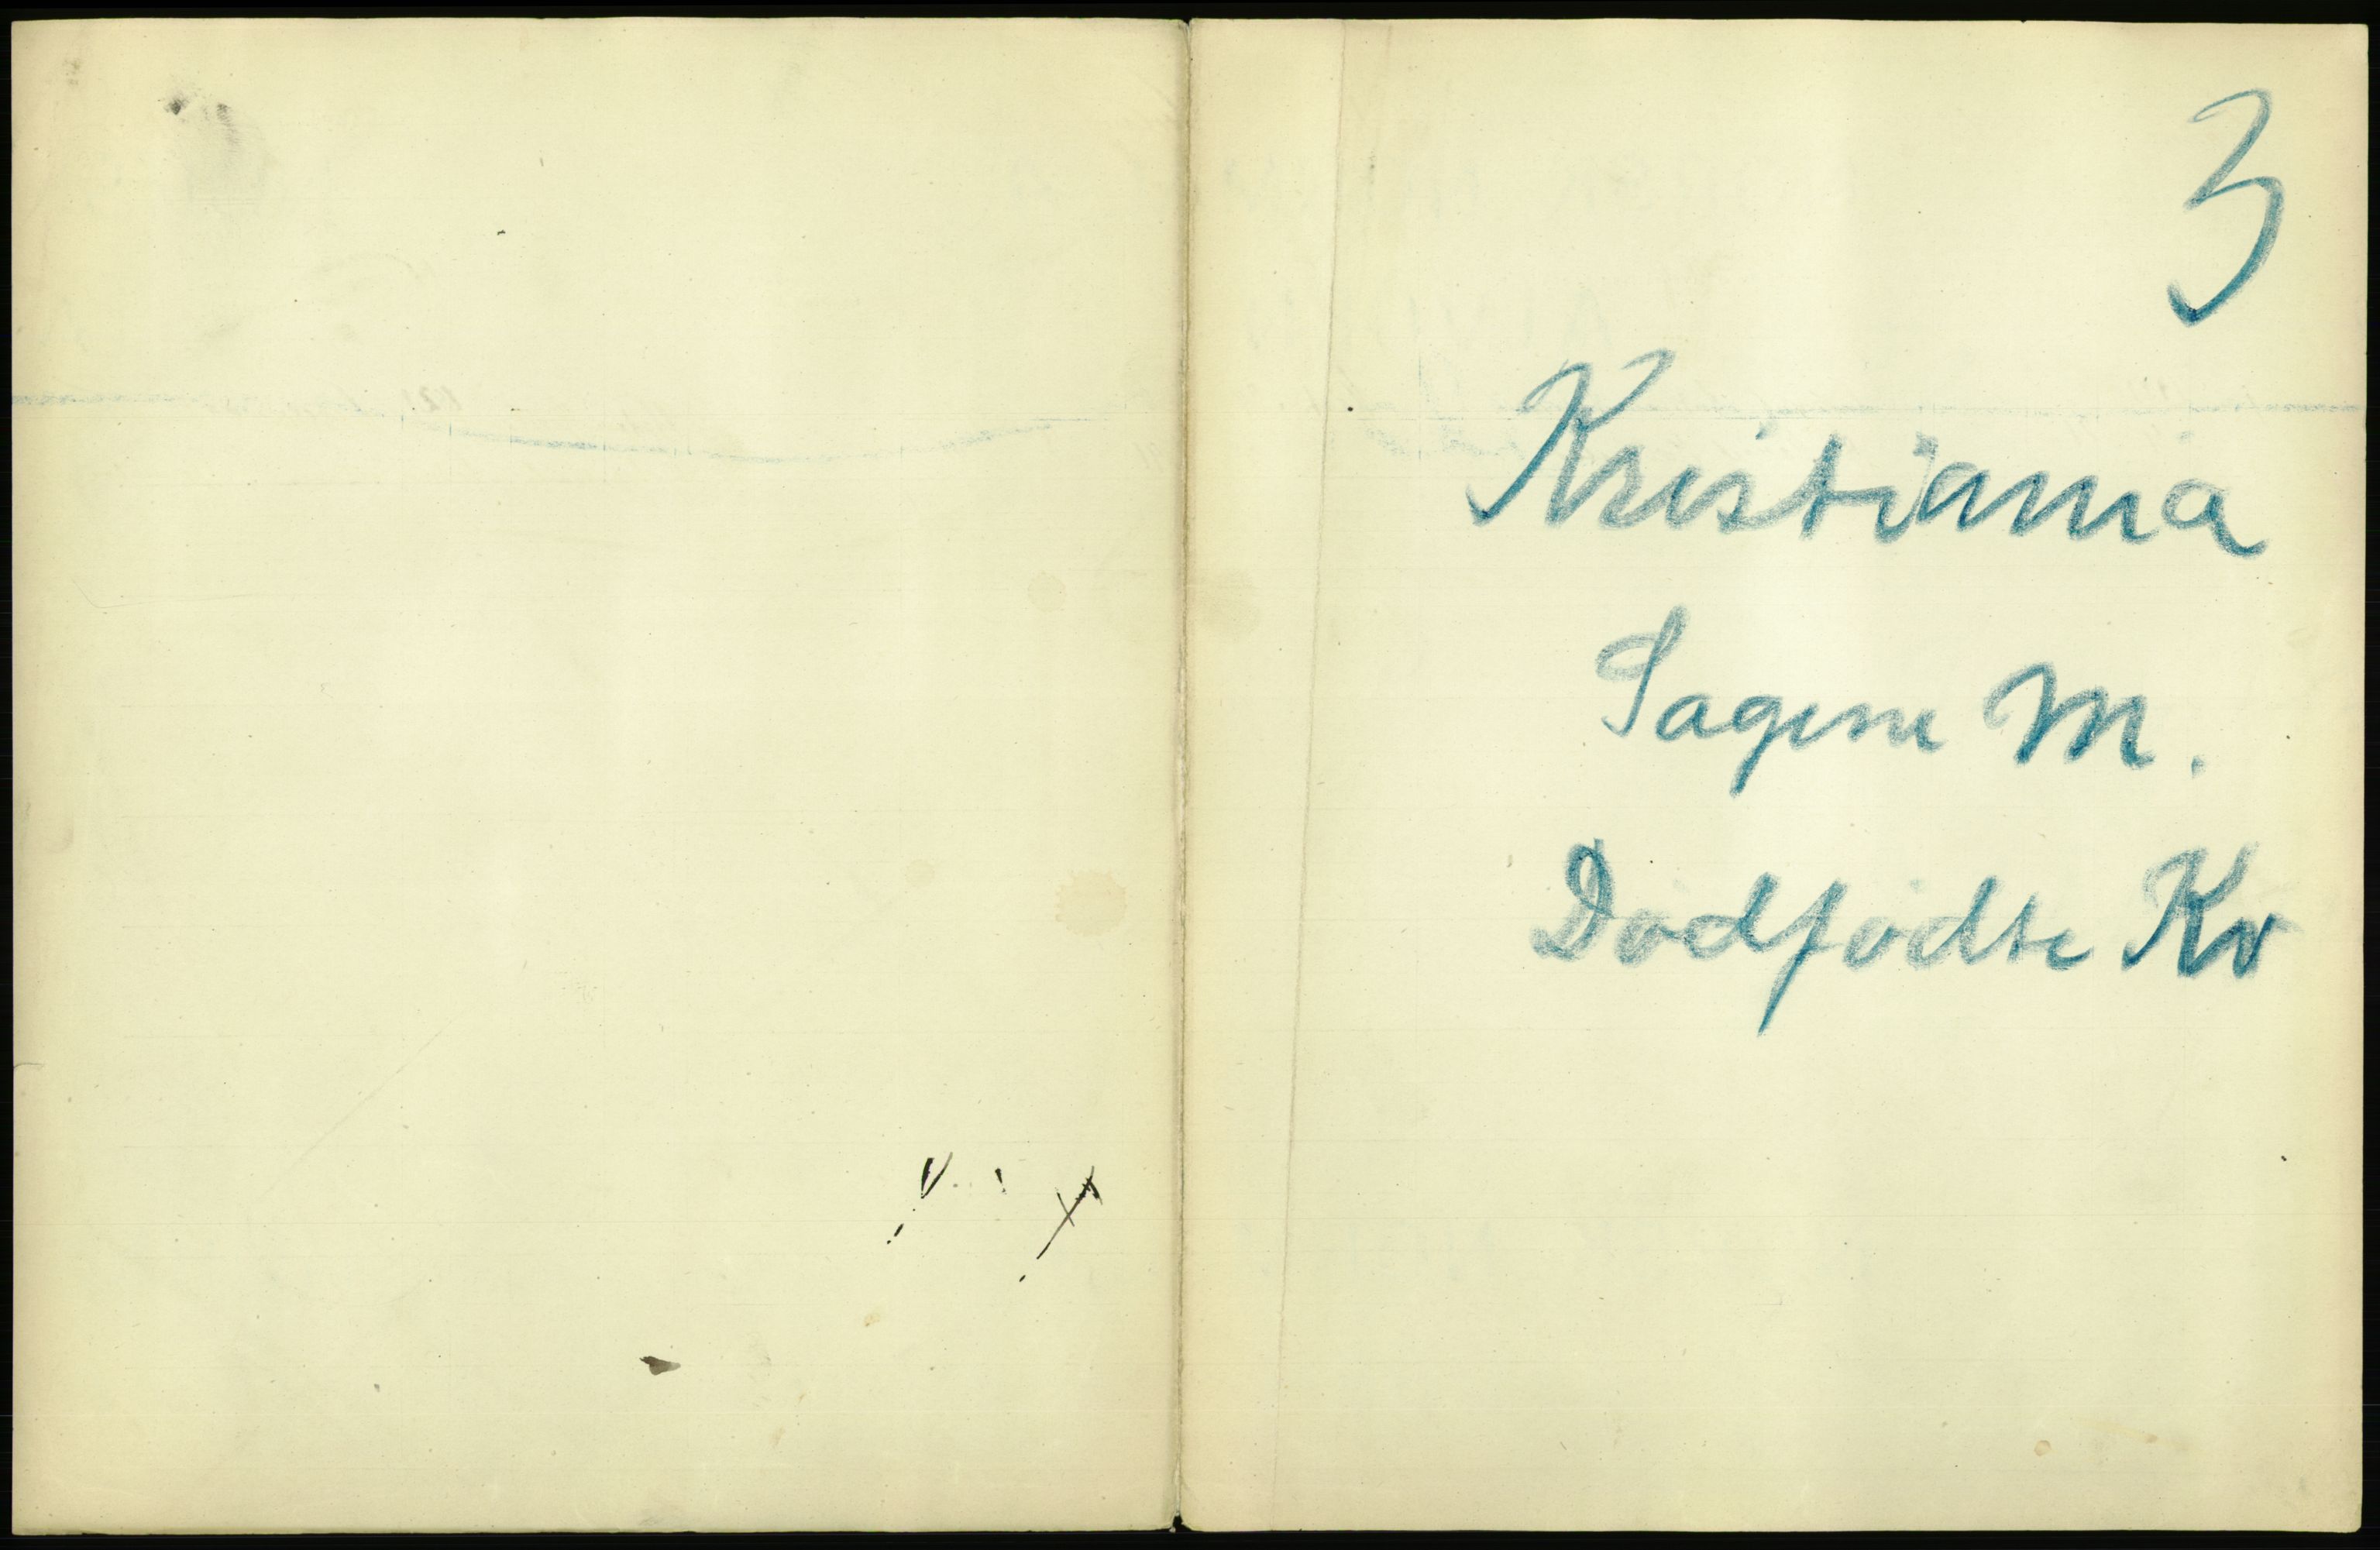 3
Kristiania
Sagene M.
Dødfødte Kv